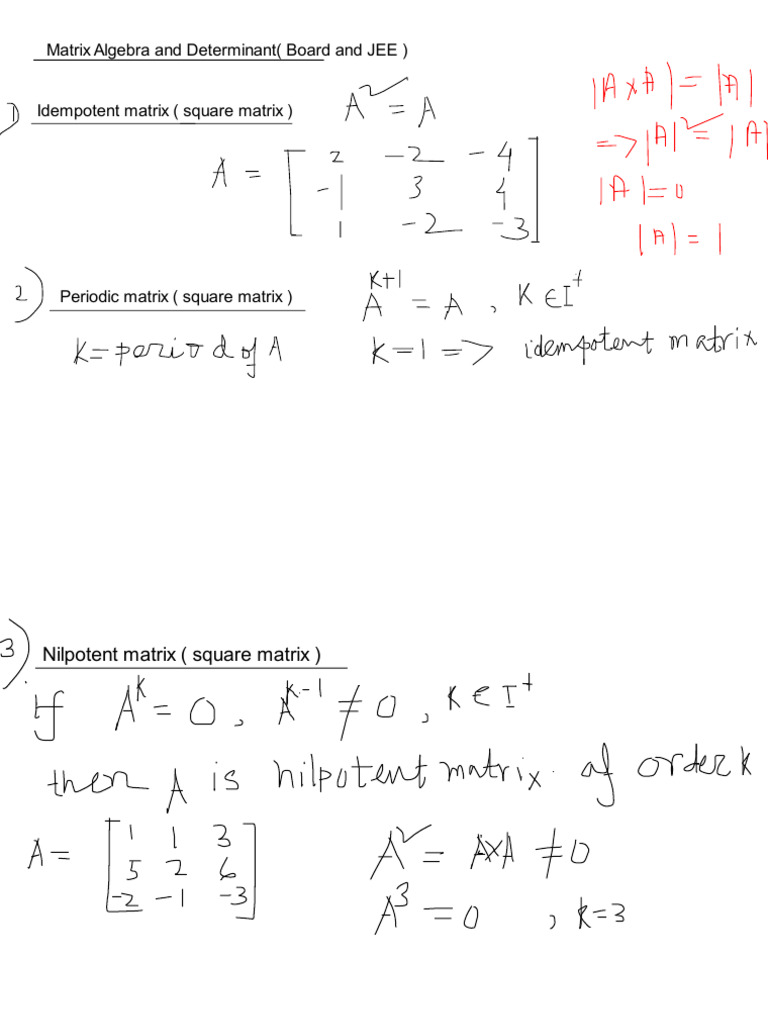 Matrix Algebra and Determinant( Board and JEE )
1) Idempotent matrix ( square matrix ) A² = A
|A×A| = |A|
=> |A|² = |A|
|A|=0
|A|=1
A = [ 2 -2 -4
-1 3 4
1 -2 -3 ]
2) Periodic matrix ( square matrix ) A^(K+1) = A , K ∈ I⁺
K=period of A k=1 => idempotent matrix
3) Nilpotent matrix ( square matrix )
If A^k = 0 , A^(k-1) ≠ 0 , K ∈ I⁺
then A is nilpotent matrix of order k
A = [ 1 1 3
5 2 6
-2 -1 -3 ]
A² = A×A ≠ 0
A³ = 0 , k=3